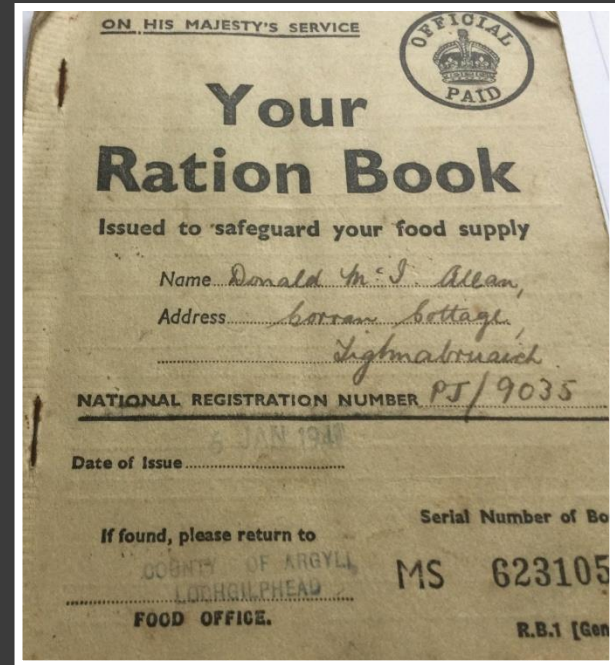 ON HIS MAJESTY'S SERVICE
OFFICIAL
PAID
Your
Ration Book
Issued to safeguard your food supply
Name Donald McI. Allan,
Address Corran Cottage,
Tighnabruaich
NATIONAL REGISTRATION NUMBER PJ/9035
6 JAN
Date of Issue
Serial Number of Bo
If found, please return to
COUNTY OF ARGYLL
LOCHGILPHEAD
MS 623105
FOOD OFFICE.
R.B.1 [Gen